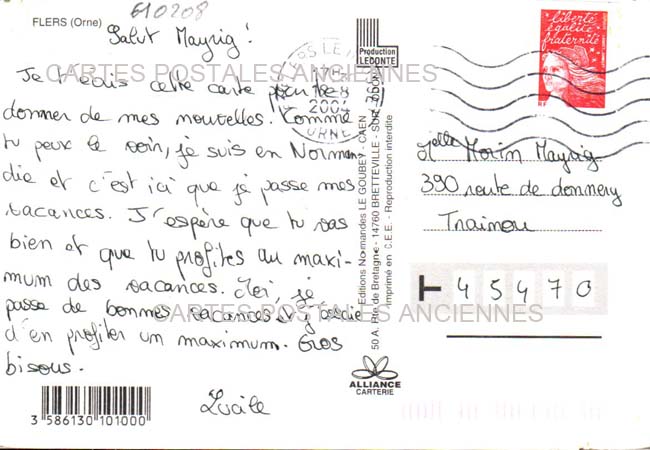 610208
FLERS (Orne)
Salut Mayrig!
Je t'envoie cette carte pour te
donner de mes nouvelles. Comme
tu peux le voir, je suis en Norman-
die et c'est ici que je passe mes
vacances. J'espère que tu vas
bien et que tu profites au maxi-
mum des vacances. Moi, je
passe de bonnes vacances et j'essaie
d'en profiter un maximum. Gros
bisous.
Lucile
3 586130 101000
Production
LECONTE
2004
ORNE
Editions Normandes LE GOUBEY - CAEN
50 A, Rte de Bretagne - 14760 BRETTEVILLE - SUR - ODON
Imprimé en C.E.E. - Reproduction interdite
ALLIANCE
CARTERIE
liberté
égalité
fraternité
RF
Melle Morin Mayrig
390 route de donnery
Trainou
45470
CARTES POSTALES ANCIENNES
CARTES POSTALES ANCIENNES